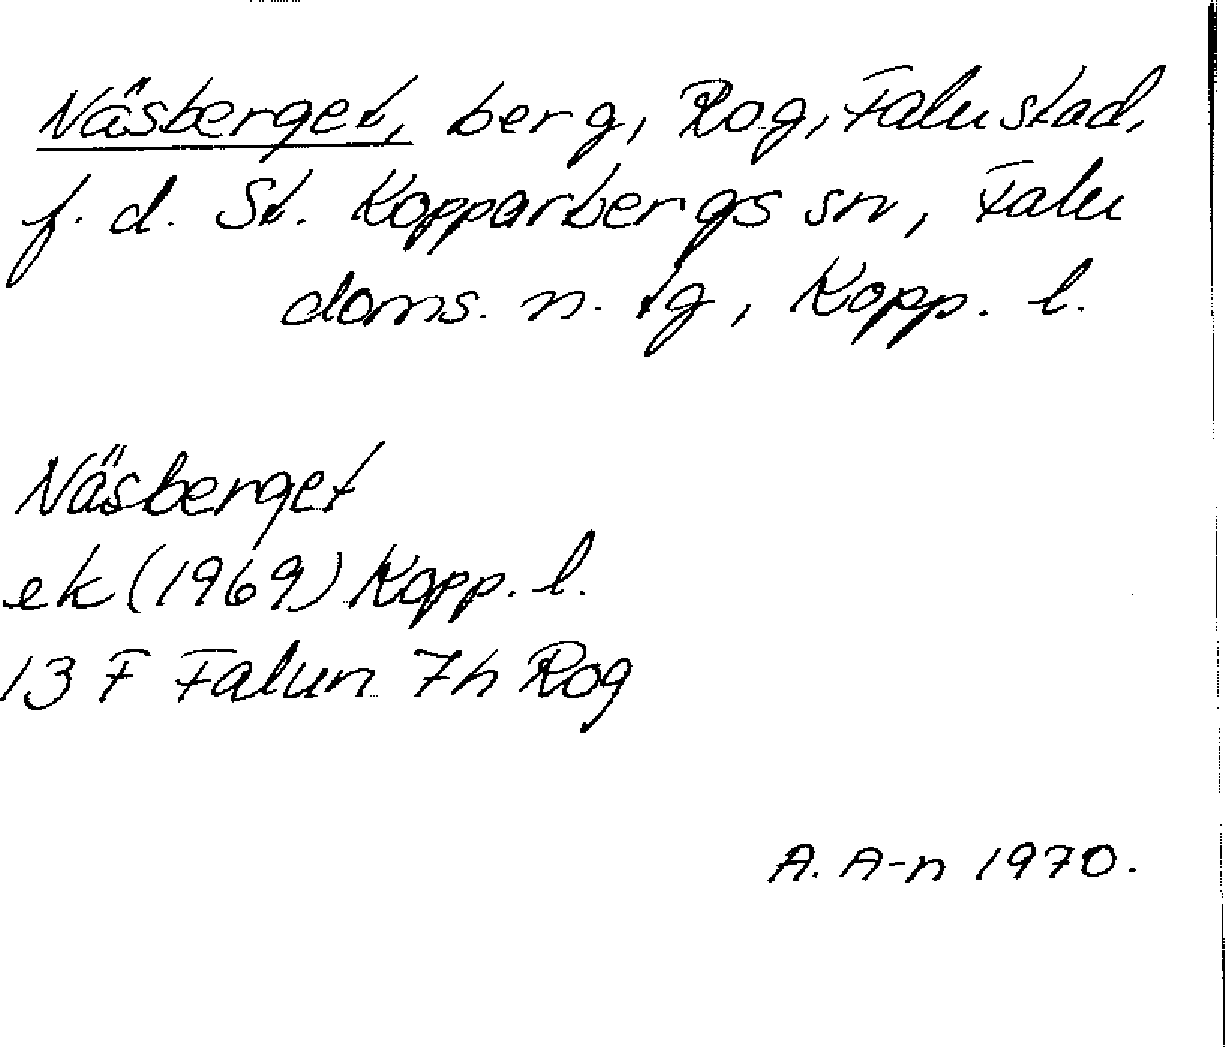 Näsberget, berg, Rog, Falu stad,
f. d. St. Kopparbergs sn, Falu
doms. n. tg, Kopp. l.
Näsberget
ek (1969) Kopp. l.
13 F Falun 7h Rog
A. A-n 1970.